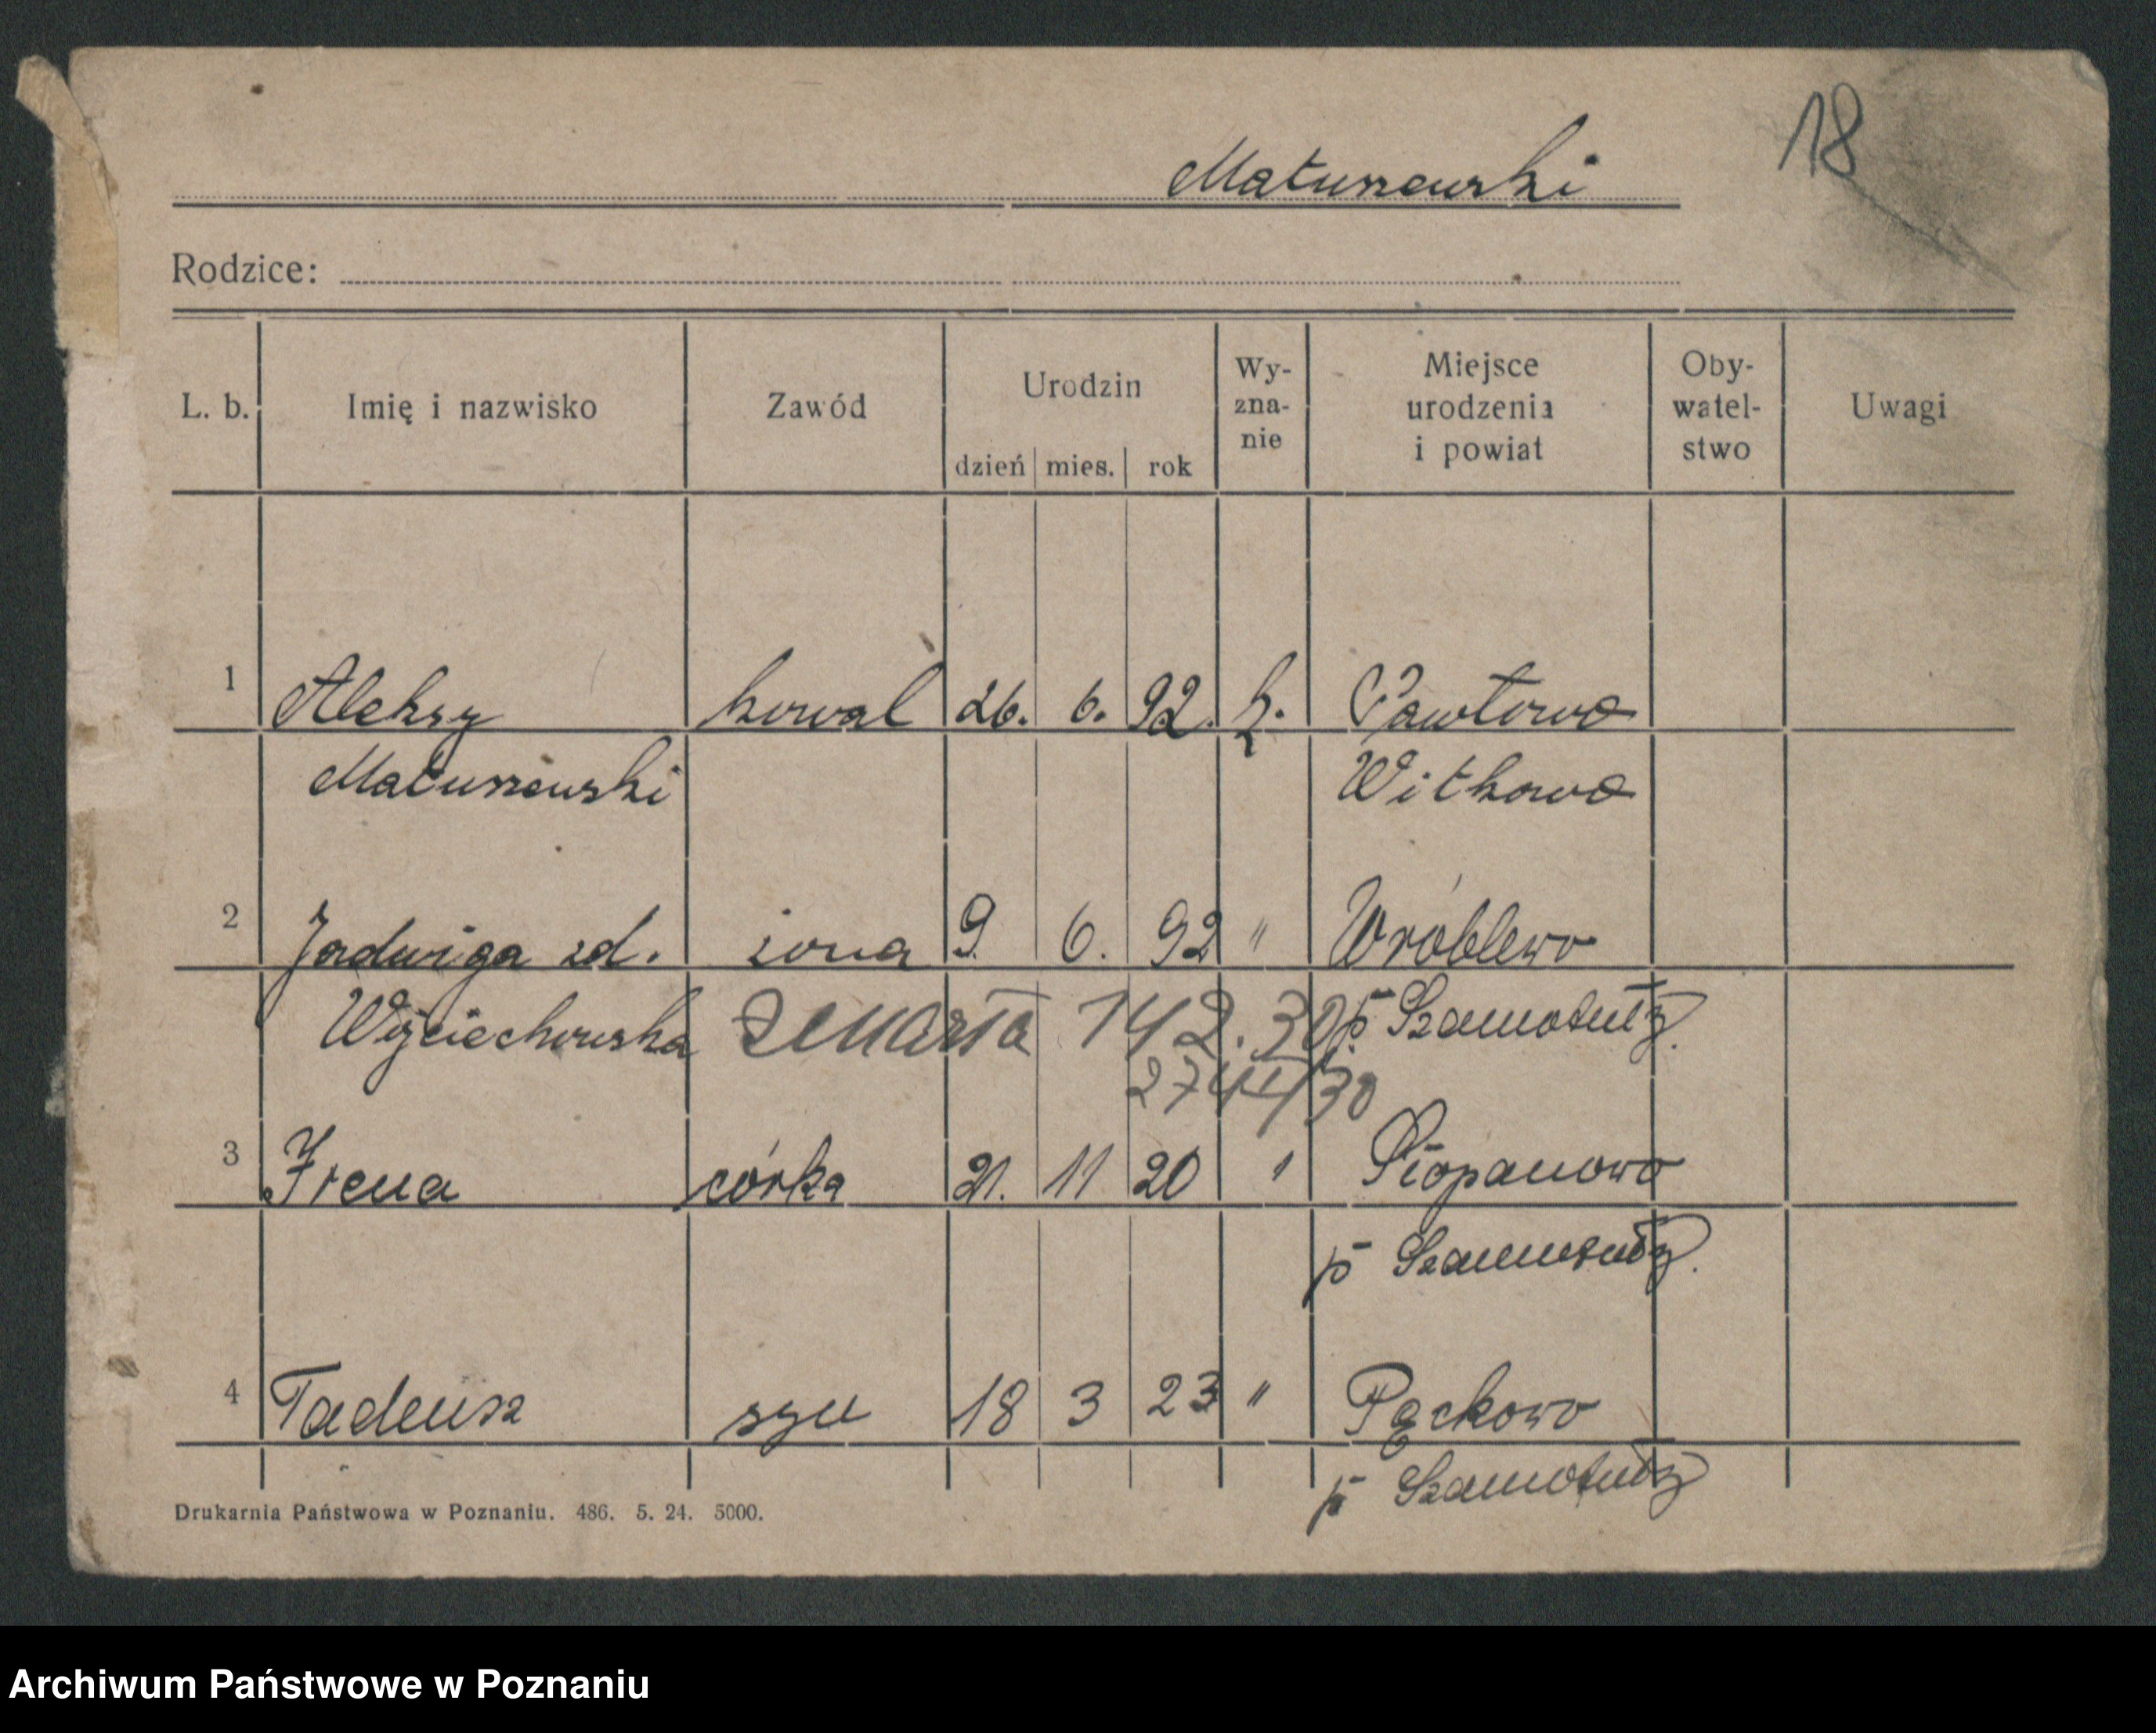 18
Matuszewski
Rodzice:
L. b. Imię i nazwisko Zawód Urodzin dzień mies. rok Wy-zna-nie Miejsce urodzenia i powiat Oby-watel-stwo Uwagi
1 Aleksy kowal 26. 6. 92. k. Pawłowo
Matuszewski Witkowo
2 Jadwiga zd. żona 9. 6. 92 " Wróblewo
Wojciechowska zmarła 14 2. 30 p Szamotuły.
274/I/30
3 Irena córka 21. 11 20 " Piopanowo
p Szamotuły.
4 Tadeusz syn 18 3 23 " Pęckowo
p Szamotuły
Drukarnia Państwowa w Poznaniu. 486. 5. 24. 5000.
Archiwum Państwowe w Poznaniu